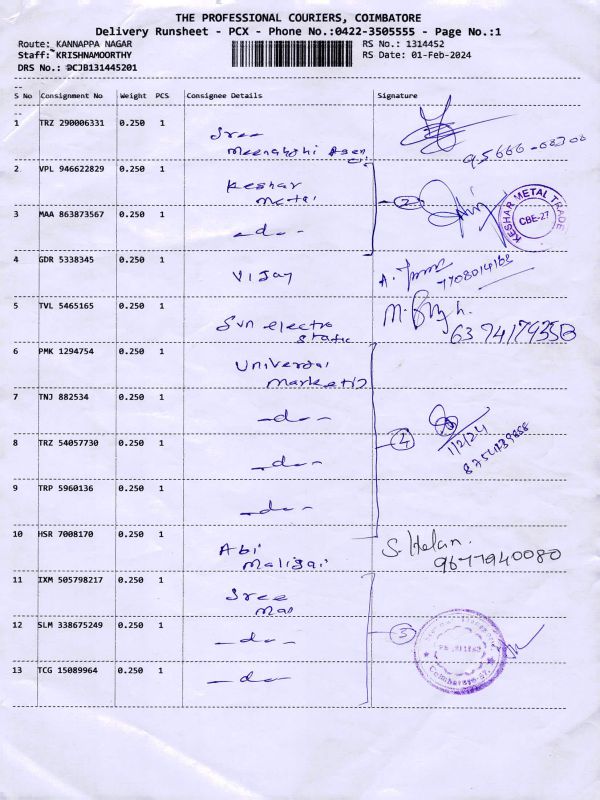 THE PROFESSIONAL COURIERS, COIMBATORE
Delivery Runsheet - PCX - Phone No.:0422-3505555 - Page No.:1
Route: KANNAPPA NAGAR
RS No.: 1314452
Staff: KRISHNAMOORTHY
RS Date: 01-Feb-2024
DRS No.: DCJB131445201
S No Consignment No Weight PCS Consignee Details Signature
1 TRZ 290006331 0.250 1 Sree
Meenakshi
2 VPL 946622829 0.250 1 Keshar
Metal
2
KESHAR METAL TRADE
CBE-27
3 MAA 863873567 0.250 1 -do-
4 GDR 5338345 0.250 1 Vijay
A.
7708014168
5 TVL 5465165 0.250 1 Sun electro
static
M.
6394179350
6 PMK 1294754 0.250 1 Universal
Marketin
7 TNJ 882534 0.250 1 -do-
8 TRZ 54057730 0.250 1 -do-
4
1/2/24
9 TRP 5960136 0.250 1 -do-
10 HSR 7008170 0.250 1 Abi
Maligai
S. Helan.
9677940080
11 IXM 505798217 0.250 1 Sree
Mas
12 SLM 338675249 0.250 1 -do-
3
13 TCG 15089964 0.250 1 -do-